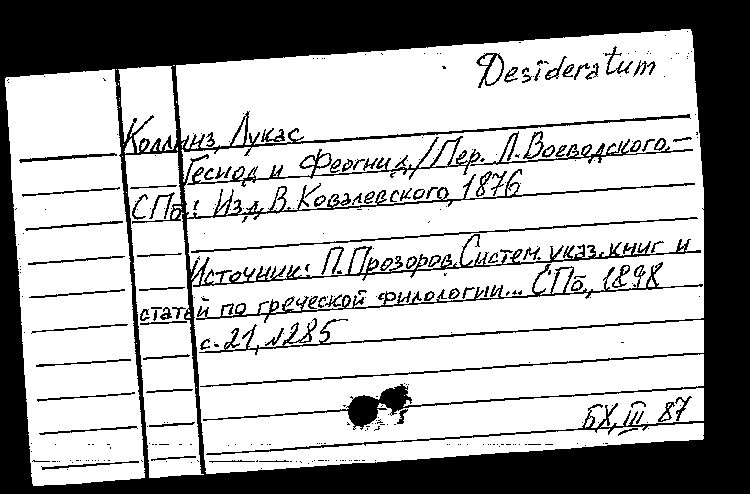 Desideratum
Коллинз, Лукас
Гесиод и Феогнид. / Пер. Л. Воеводского. –
СПб.: Изд. В. Ковалевского, 1876
Источник: П. Прозоров. Систем. указ. книг и
статей по греческой филологии... СПб., 1898
с. 21, №285
БХ, III, 87